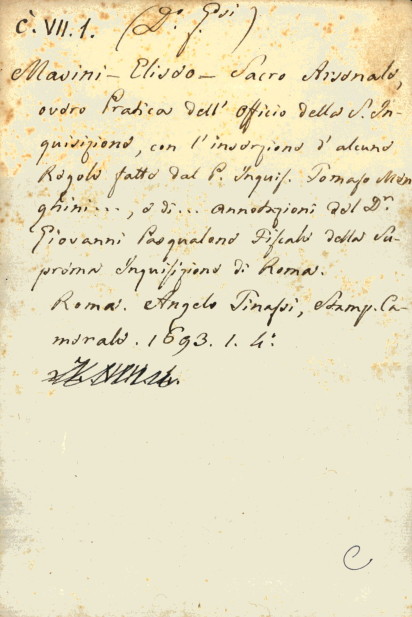 C. VII. 1. (D.r f. Gsi)
Masini - Eliseo - Sacro Arsenale,
ovvero Pratica dell' Officio della S. In-
quisizione, con l'inserzione d'alcune
Regole fatte dal P. Inquis. Tomaso Men
ghini..., e di... annotazioni del D.r
Giovanni Pasqualone Fiscale della Su-
prema Inquisizione di Roma.
Roma. Angelo Tinassi, Stamp. Ca-
merale. 1693. 1. 4.o
C